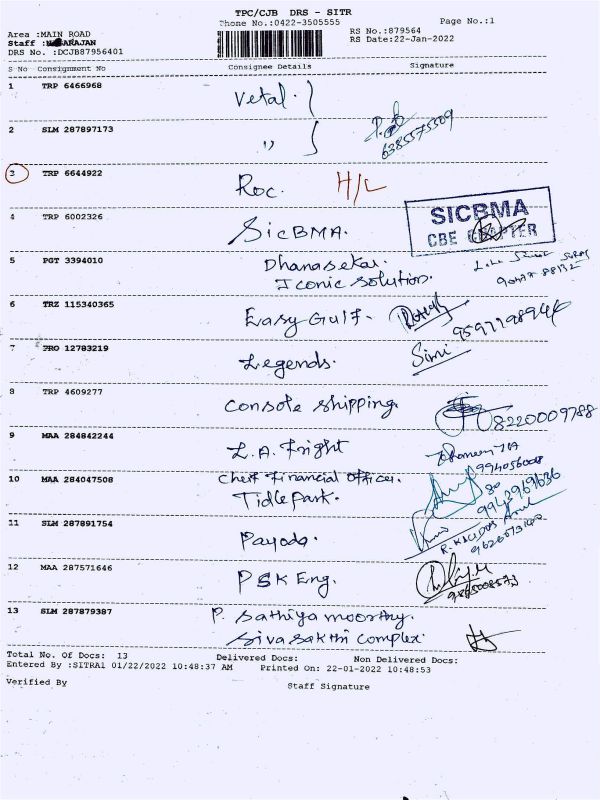 TPC/CJB DRS - SITR
Phone No.:0422-3505555
Page No.:1
Area :MAIN ROAD
RS No.:879564
Staff :
RS Date:22-Jan-2022
DRS No. :DCJB87956401
S No Consignment No Consignee Details Signature
1 TRP 6466968 Vetal.
2 SLM 287897173 "
6385575509
3 TRP 6644922 Roc. H/L
4 TRP 6002326 SicBMA.
SICBMA
CBE CHAPTER
5 PGT 3394010 Dhanasekar.
Iconic Solution.
6 TRZ 115340365 Easy Gulf.
7 PRO 12783219 Legends. Simi
8 TRP 4609277 Console shipping. 8220009788
9 MAA 284842244 L.A. Fright
10 MAA 284047508 Cheif Financial Officer.
Tidle Park.
11 SLM 287891754 Payoda.
12 MAA 287571646 PSK Eng.
13 SLM 287879387 P. Sathiya moorthy.
Siva Sakthi Complex.
Total No. Of Docs: 13 Delivered Docs: Non Delivered Docs:
Entered By :SITRA1 01/22/2022 10:48:37 AM Printed On: 22-01-2022 10:48:53
Verified By Staff Signature